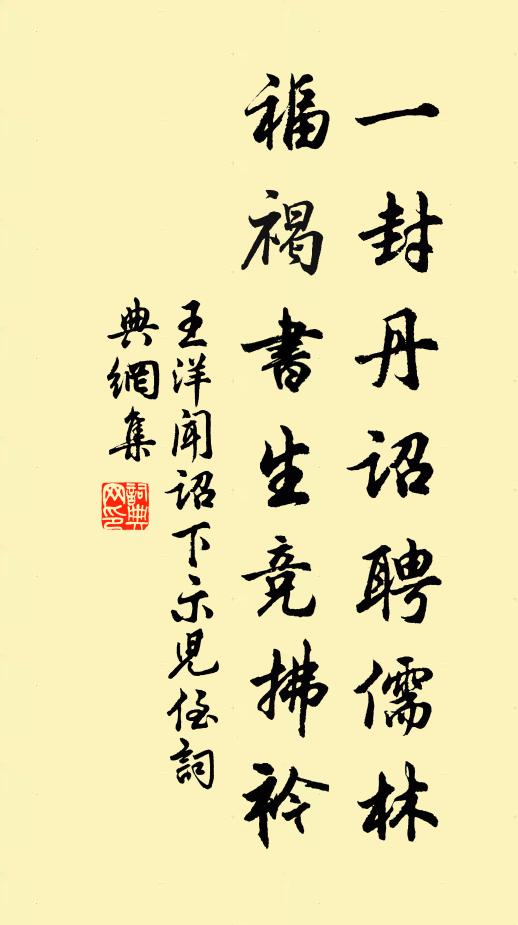 一封丹诏聘儒林
福褐書生竞拂衿
王洋闻诏下示児侄詞
典網集
詞典网印